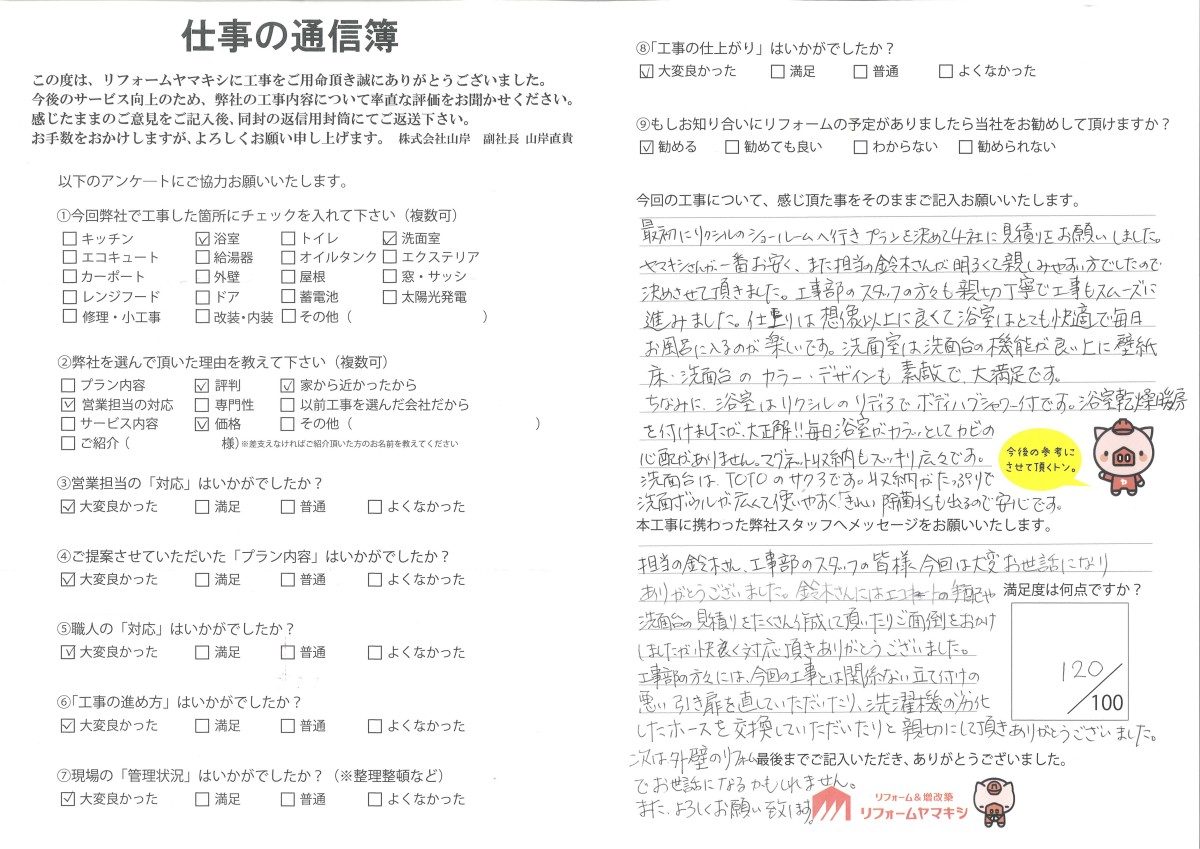 仕事の通信簿
この度は、リフォームヤマキシに工事をご用命頂き誠にありがとうございました。
今後のサービス向上のため、弊社の工事内容について率直な評価をお聞かせください。
感じたままのご意見をご記入後、同封の返信用封筒にてご返送下さい。
お手数をおかけしますが、よろしくお願い申し上げます。 株式会社山岸 副社長 山岸直貴
以下のアンケートにご協力お願いいたします。
①今回弊社で工事した箇所にチェックを入れて下さい（複数可）
□ キッチン ☑ 浴室 □ トイレ ☑ 洗面室
□ エコキュート □ 給湯器 □ オイルタンク □ エクステリア
□ カーポート □ 外壁 □ 屋根 □ 窓・サッシ
□ レンジフード □ ドア □ 蓄電池 □ 太陽光発電
□ 修理・小工事 □ 改装・内装 □ その他（ ）
②弊社を選んで頂いた理由を教えて下さい（複数可）
□ プラン内容 ☑ 評判 ☑ 家から近かったから
☑ 営業担当の対応 □ 専門性 □ 以前工事を選んだ会社だから
□ サービス内容 ☑ 価格 □ その他（ ）
□ ご紹介（ 様）※差支えなければご紹介頂いた方のお名前を教えてください
③営業担当の「対応」はいかがでしたか？
☑ 大変良かった □ 満足 □ 普通 □ よくなかった
④ご提案させていただいた「プラン内容」はいかがでしたか？
☑ 大変良かった □ 満足 □ 普通 □ よくなかった
⑤職人の「対応」はいかがでしたか？
☑ 大変良かった □ 満足 □ 普通 □ よくなかった
⑥「工事の進め方」はいかがでしたか？
☑ 大変良かった □ 満足 □ 普通 □ よくなかった
⑦現場の「管理状況」はいかがでしたか？（※整理整頓など）
☑ 大変良かった □ 満足 □ 普通 □ よくなかった
⑧「工事の仕上がり」はいかがでしたか？
☑ 大変良かった □ 満足 □ 普通 □ よくなかった
⑨もしお知り合いにリフォームの予定がありましたら当社をお勧めして頂けますか？
☑ 勧める □ 勧めても良い □ わからない □ 勧められない
今回の工事について、感じ頂た事をそのままご記入お願いいたします。
最初にリクシルのショールームへ行きプランを決めて4社に見積りをお願いしました。
ヤマキシさんが一番お安く、また担当の鈴木さんが明るくて親しみやすい方でしたので
決めさせて頂きました。工事部のスタッフの方々も親切丁寧で工事もスムーズに
進みました。仕上りは想像以上に良くて浴室はとても快適で毎日
お風呂に入るのが楽しいです。洗面室は洗面台の機能が良い上に壁紙
床・洗面台のカラー・デザインも素敵で、大満足です。
ちなみに、浴室はリクシルのリデアでボディハグシャワー付です。浴室乾燥暖房
を付けましたが、大正解!!毎日浴室がカラッとしてカビの
心配がありません。マグネット収納もスッキリ広々です。
洗面台は、TOTOのサクアです。収納がたっぷりで
洗面ボウルが広くて使いやすく「きれい除菌水」も出るので安心です。
今後の参考に
させて頂くトン。
本工事に携わった弊社スタッフへメッセージをお願いいたします。
担当の鈴木さん、工事部のスタッフの皆様、今回は大変お世話になり
ありがとうございました。鈴木さんにはエコキュートの手配や
洗面台の見積りをたくさん作成して頂いたりご面倒をおかけ
しましたが快良く対応頂きありがとうございました。
工事部の方々には、今回の工事とは関係ない立て付けの
悪い引き扉を直していただいたり、洗濯機の劣化
したホースを交換していただいたりと親切にして頂きありがとうございました。
次は外壁のリフォーム
でお世話になるかもしれません。
また、よろしくお願い致します。
満足度は何点ですか？
120/100
最後までご記入いただき、ありがとうございました。
リフォーム&増改築
リフォームヤマキシ